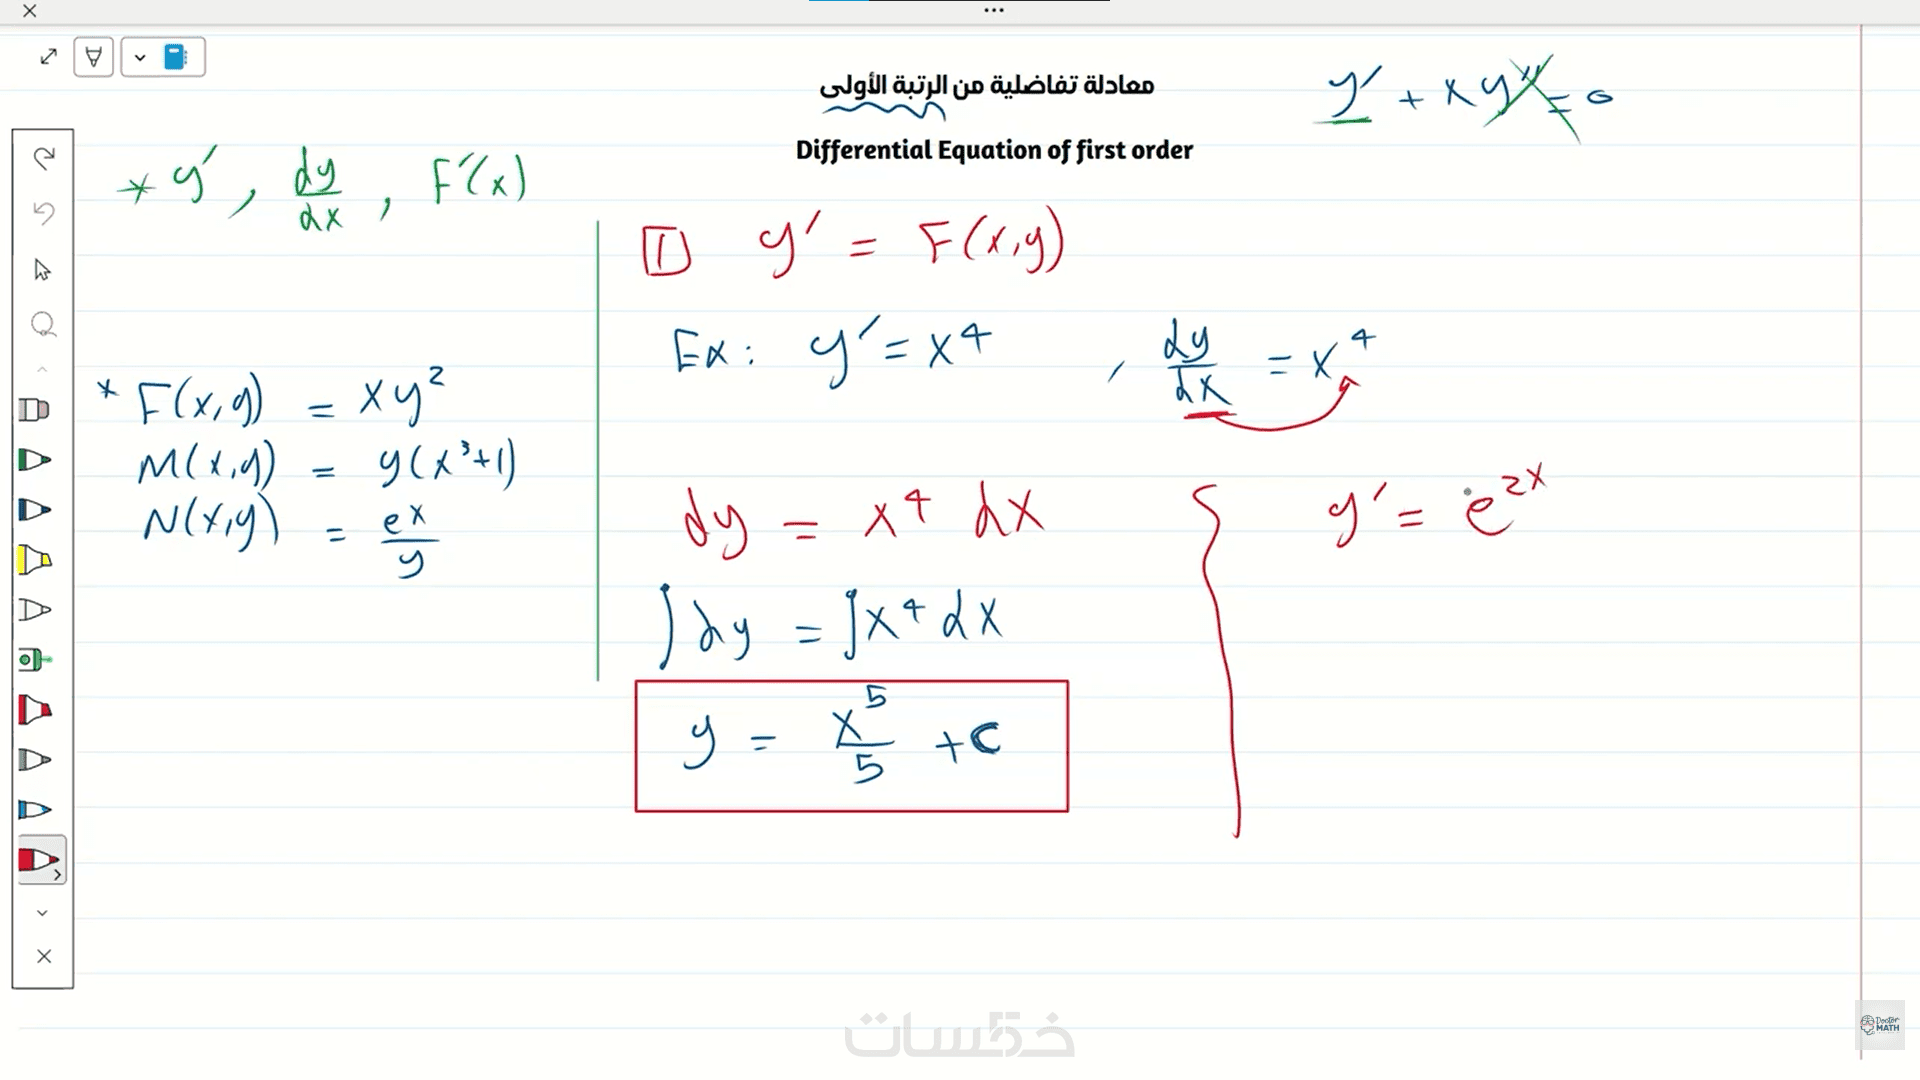 معادلة تفاضلية من الرتبة الأولى
y' + x y'' = 0
Differential Equation of first order
* y' , dy/dx , F'(x)
1 y' = F(x,y)
Ex: y' = x^4 , dy/dx = x^4
* F(x,y) = xy^2
M(x,y) = y(x^3+1)
N(x,y) = e^x/y
dy = x^4 dx
y' = e^2x
∫dy = ∫x^4 dx
y = x^5/5 + c
خمسات
Doctor MATH